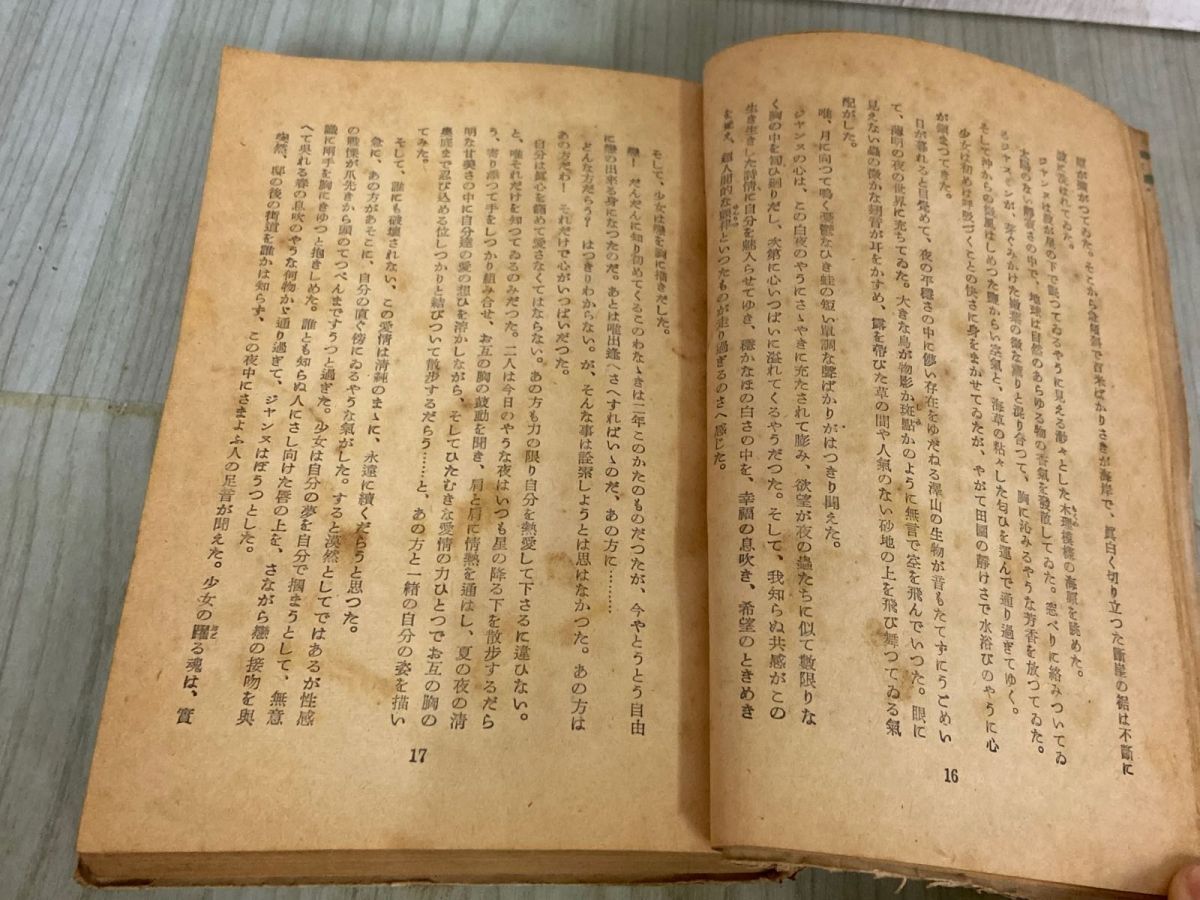 原が廣がつてゐた。そこから急傾斜で百米ばかりさきが海岸で、眞白く切り立つた斷崖の裾は不斷に
波に洗はれてゐた。
ジャンヌは數が星の下で眠つてゐるやうに見える渺々とした木理模樣の海原を眺めた。
太陽のない靜寂さの中で、地球は自然のあらゆる物の香氣を發散してゐた。窓べりに絡みついてゐ
るジャスミンが、芽ぐみかけた嫩葉の微な薫りと混り合つて、胸に沁みるやうな芳香を放つてゐた。
そして沖からの微風はしめつた鹽からい空氣と、海草の粘々した匂ひを運んで通り過ぎてゆく。
少女は初め呼吸づくことの快さに身をまかせてゐたが、やがて田園の靜けさで水浴びのやうに心
が鎭まつてきた。
日が暮れると目覺めて、夜の平穩さの中に儚い存在をゆだねる澤山の生物が音もたてずにうごめい
て、薄明の夜の世界に充ちてゐた。大きな鳥が物影か斑點かのように無言で空を飛んでいつた。眼に
見えない蟲の微かな翅音が耳をかすめ、露を帶びた草の間や人氣のない砂地の上を飛び舞つてゐる氣
配がした。
唯、月に向つて鳴く憂鬱なひき蛙の短い單調な聲ばかりがはつきり聞えた。
ジャンヌの心は、この白夜のやうにさゝやきに充たされて膨み、欲望が夜の蟲たちに似て數限りな
く胸の中を匍ひ廻りだし、次第に心いつぱいに溢れてくるやうだつた。そして、我知らぬ共感がこの
生き生きした詩情に自分を魅入らせてゆき、穩かなほの白さの中を、幸福の息吹き、希望のときめき
を覺え、超人間的な顫律といつたものが走り過ぎるのさへ感じた。
16
そして、少女は戀を胸に描きだした。
戀! だんだんに知り初めてくるこのわなゝきは二年このかたのものだつたが、今やとうとう自由
に戀の出來る身になつたのだ。あとは唯出逢へさへすればいゝのだ、あの方に………
どんな方だらう? はつきりわからない。が、そんな事は詮索しようとは思はなかつた。あの方は
あの方だわ! それだけで心がいつぱいだつた。
自分は眞心を籠めて愛さなくてはならない。あの方も力の限り自分を熱愛して下さるに違ひない。
と、唯それだけを知つてゐるのみだつた。二人は今日のやうな夜はいつも星の降る下を散歩するだら
う、寄り添つて手をしつかり組み合せ、お互の胸の鼓動を聞き、肩と肩に情熱を通はし、夏の夜の清
明な甘美さの中に自分達の愛の想ひを溶かしながら、そしてひたむきな愛情の力ひとつでお互の胸の
奧底まで忍び込める位しつかりと結びついて散歩するだらう……と、あの方と一緒の自分の姿を描い
てみた。
そして、誰にも破壞されない、この愛情は清純のまゝに、永遠に續くだらうと思つた。
急に、あの方があそこに、自分の直ぐ傍にゐるやうな氣がした。すると漠然としてではあるが性感
の戰慄が爪先きから頭のてつぺんまですうつと過ぎた。少女は自分の夢を自分で摑まうとして、無意
識に兩手を胸にきゆつと抱きしめた。誰とも知らぬ人にさし向けた唇の上を、さながら戀の接吻を與
へて呉れる春の息吹のやうな何物かゞ通り過ぎて、ジャンヌはぼうつとした。
突然、邸の後の街道を誰かは知らず、この夜中にさまよふ人の足音が聞えた。少女の躍る魂は、實
17